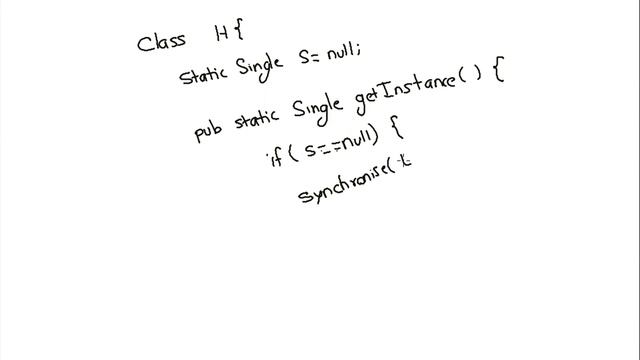 Class H{
static Single s= null;
pub static Single getInstance() {
if( s==null) {
synchronise( t